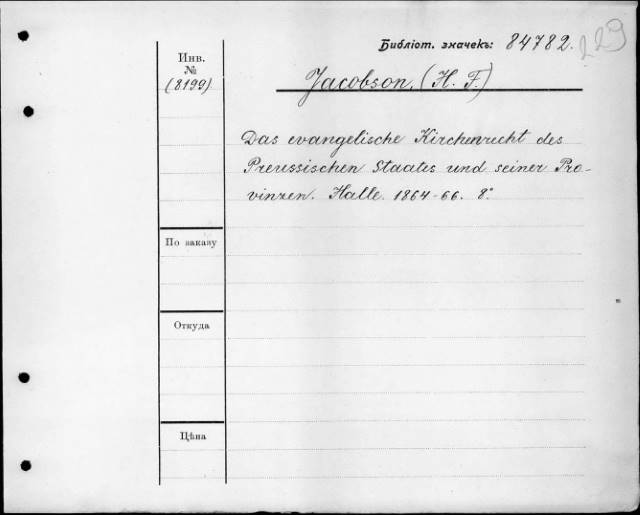 Библіот. значекъ: 84782.
229
Инв.
№
(8199)
Jacobson, (H. F.)
Das evangelische Kirchenrecht des
Preussischen Staates und seiner Pro-
vinzen. Halle. 1864-66. 8°
По заказу
Откуда
Цѣна